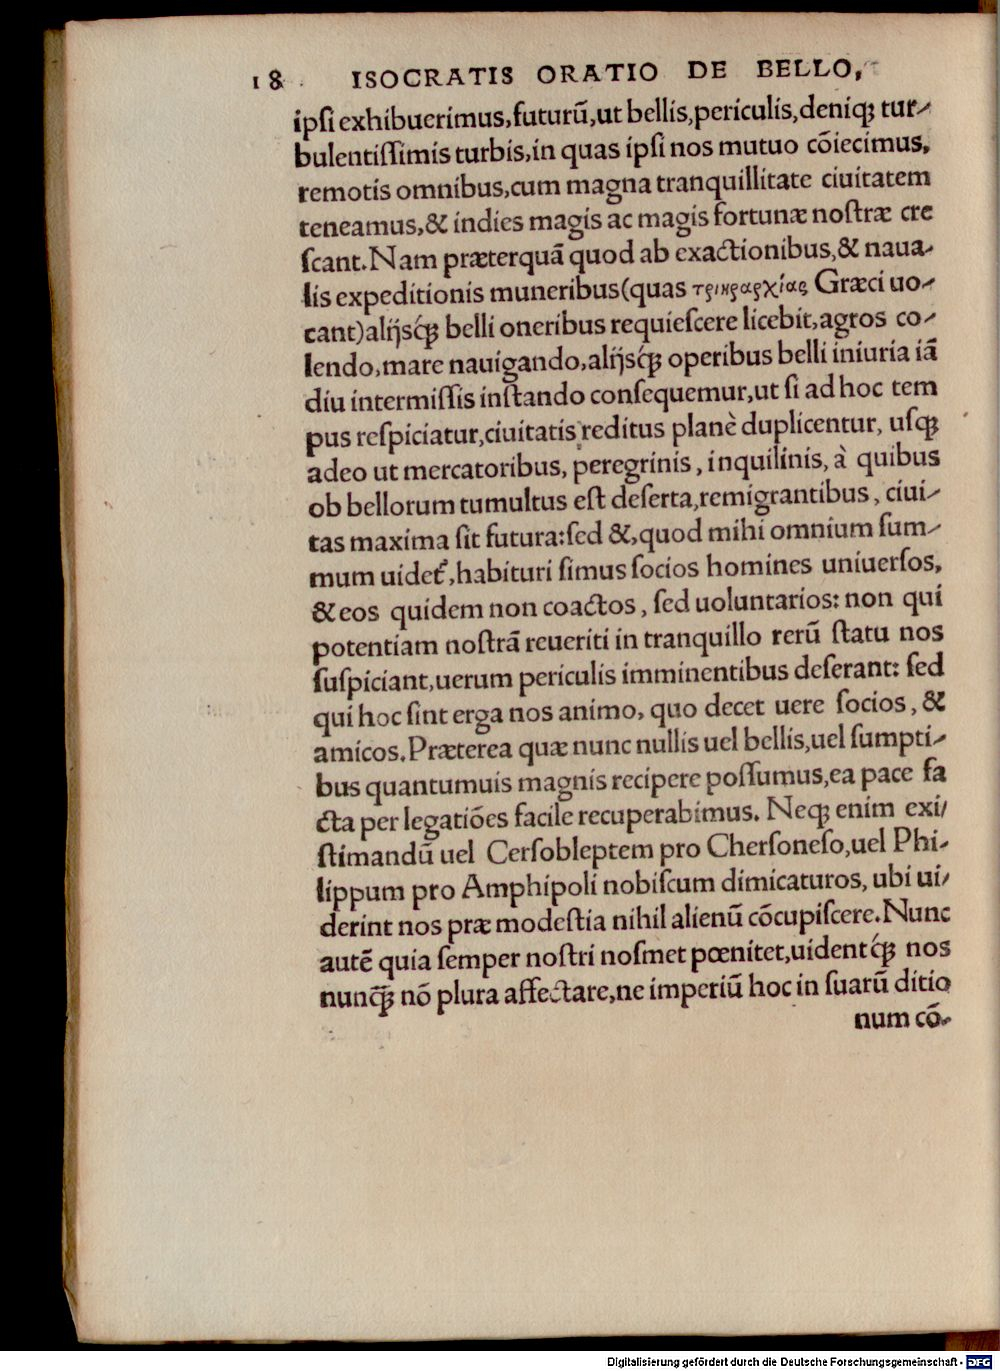 18 ISOCRATIS ORATIO DE BELLO,
ipſi exhibuerimus,futurũ,ut bellis,periculis,deniqꝫ tur-
bulentiſſimis turbis,in quas ipſi nos mutuo cõiecimus,
remotis omnibus,cum magna tranquillitate ciuitatem
teneamus,& indies magis ac magis fortunæ noſtræ cre
ſcant.Nam præterquã quod ab exactionibus,& naua-
lis expeditionis muneribus(quas τριηραρχίας Græci uo-
cant)alijsq́ꝫ belli oneribus requieſcere licebit,agros co-
lendo,mare nauigando,alijsq́ꝫ operibus belli iniuria iã
diu intermiſſis inſtando conſequemur,ut ſi ad hoc tem
pus reſpiciatur,ciuitatis reditus planè duplicentur, uſqꝫ
adeo ut mercatoribus, peregrinis, inquilinis, à quibus
ob bellorum tumultus eſt deſerta,remigrantibus, ciui-
tas maxima ſit futura:ſed &,quod mihi omnium ſum-
mum uidet᷑,habituri ſimus ſocios homines uniuerſos,
& eos quidem non coactos, ſed uoluntarios: non qui
potentiam noſtrã reueriti in tranquillo rerũ ſtatu nos
ſuſpiciant,uerum periculis imminentibus deſerant: ſed
qui hoc ſint erga nos animo, quo decet uere ſocios, &
amicos.Præterea quæ nunc nullis uel bellis,uel ſumpti-
bus quantumuis magnis recipere poſſumus,ea pace fa
cta per legatiões facile recuperabimus. Neqꝫ enim exi/
ſtimandũ uel Cerſobleptem pro Cherſoneſo,uel Phi-
lippum pro Amphipoli nobiſcum dimicaturos, ubi ui/
derint nos præ modeſtia nihil alienũ cõcupiſcere.Nunc
autẽ quia ſemper noſtri noſmet pœnitet,uidentq́ꝫ nos
nunq̃ꝫ nõ plura affectare,ne imperiũ hoc in ſuarũ ditio
num cõ-
Digitalisierung gefördert durch die Deutsche Forschungsgemeinschaft - DFG